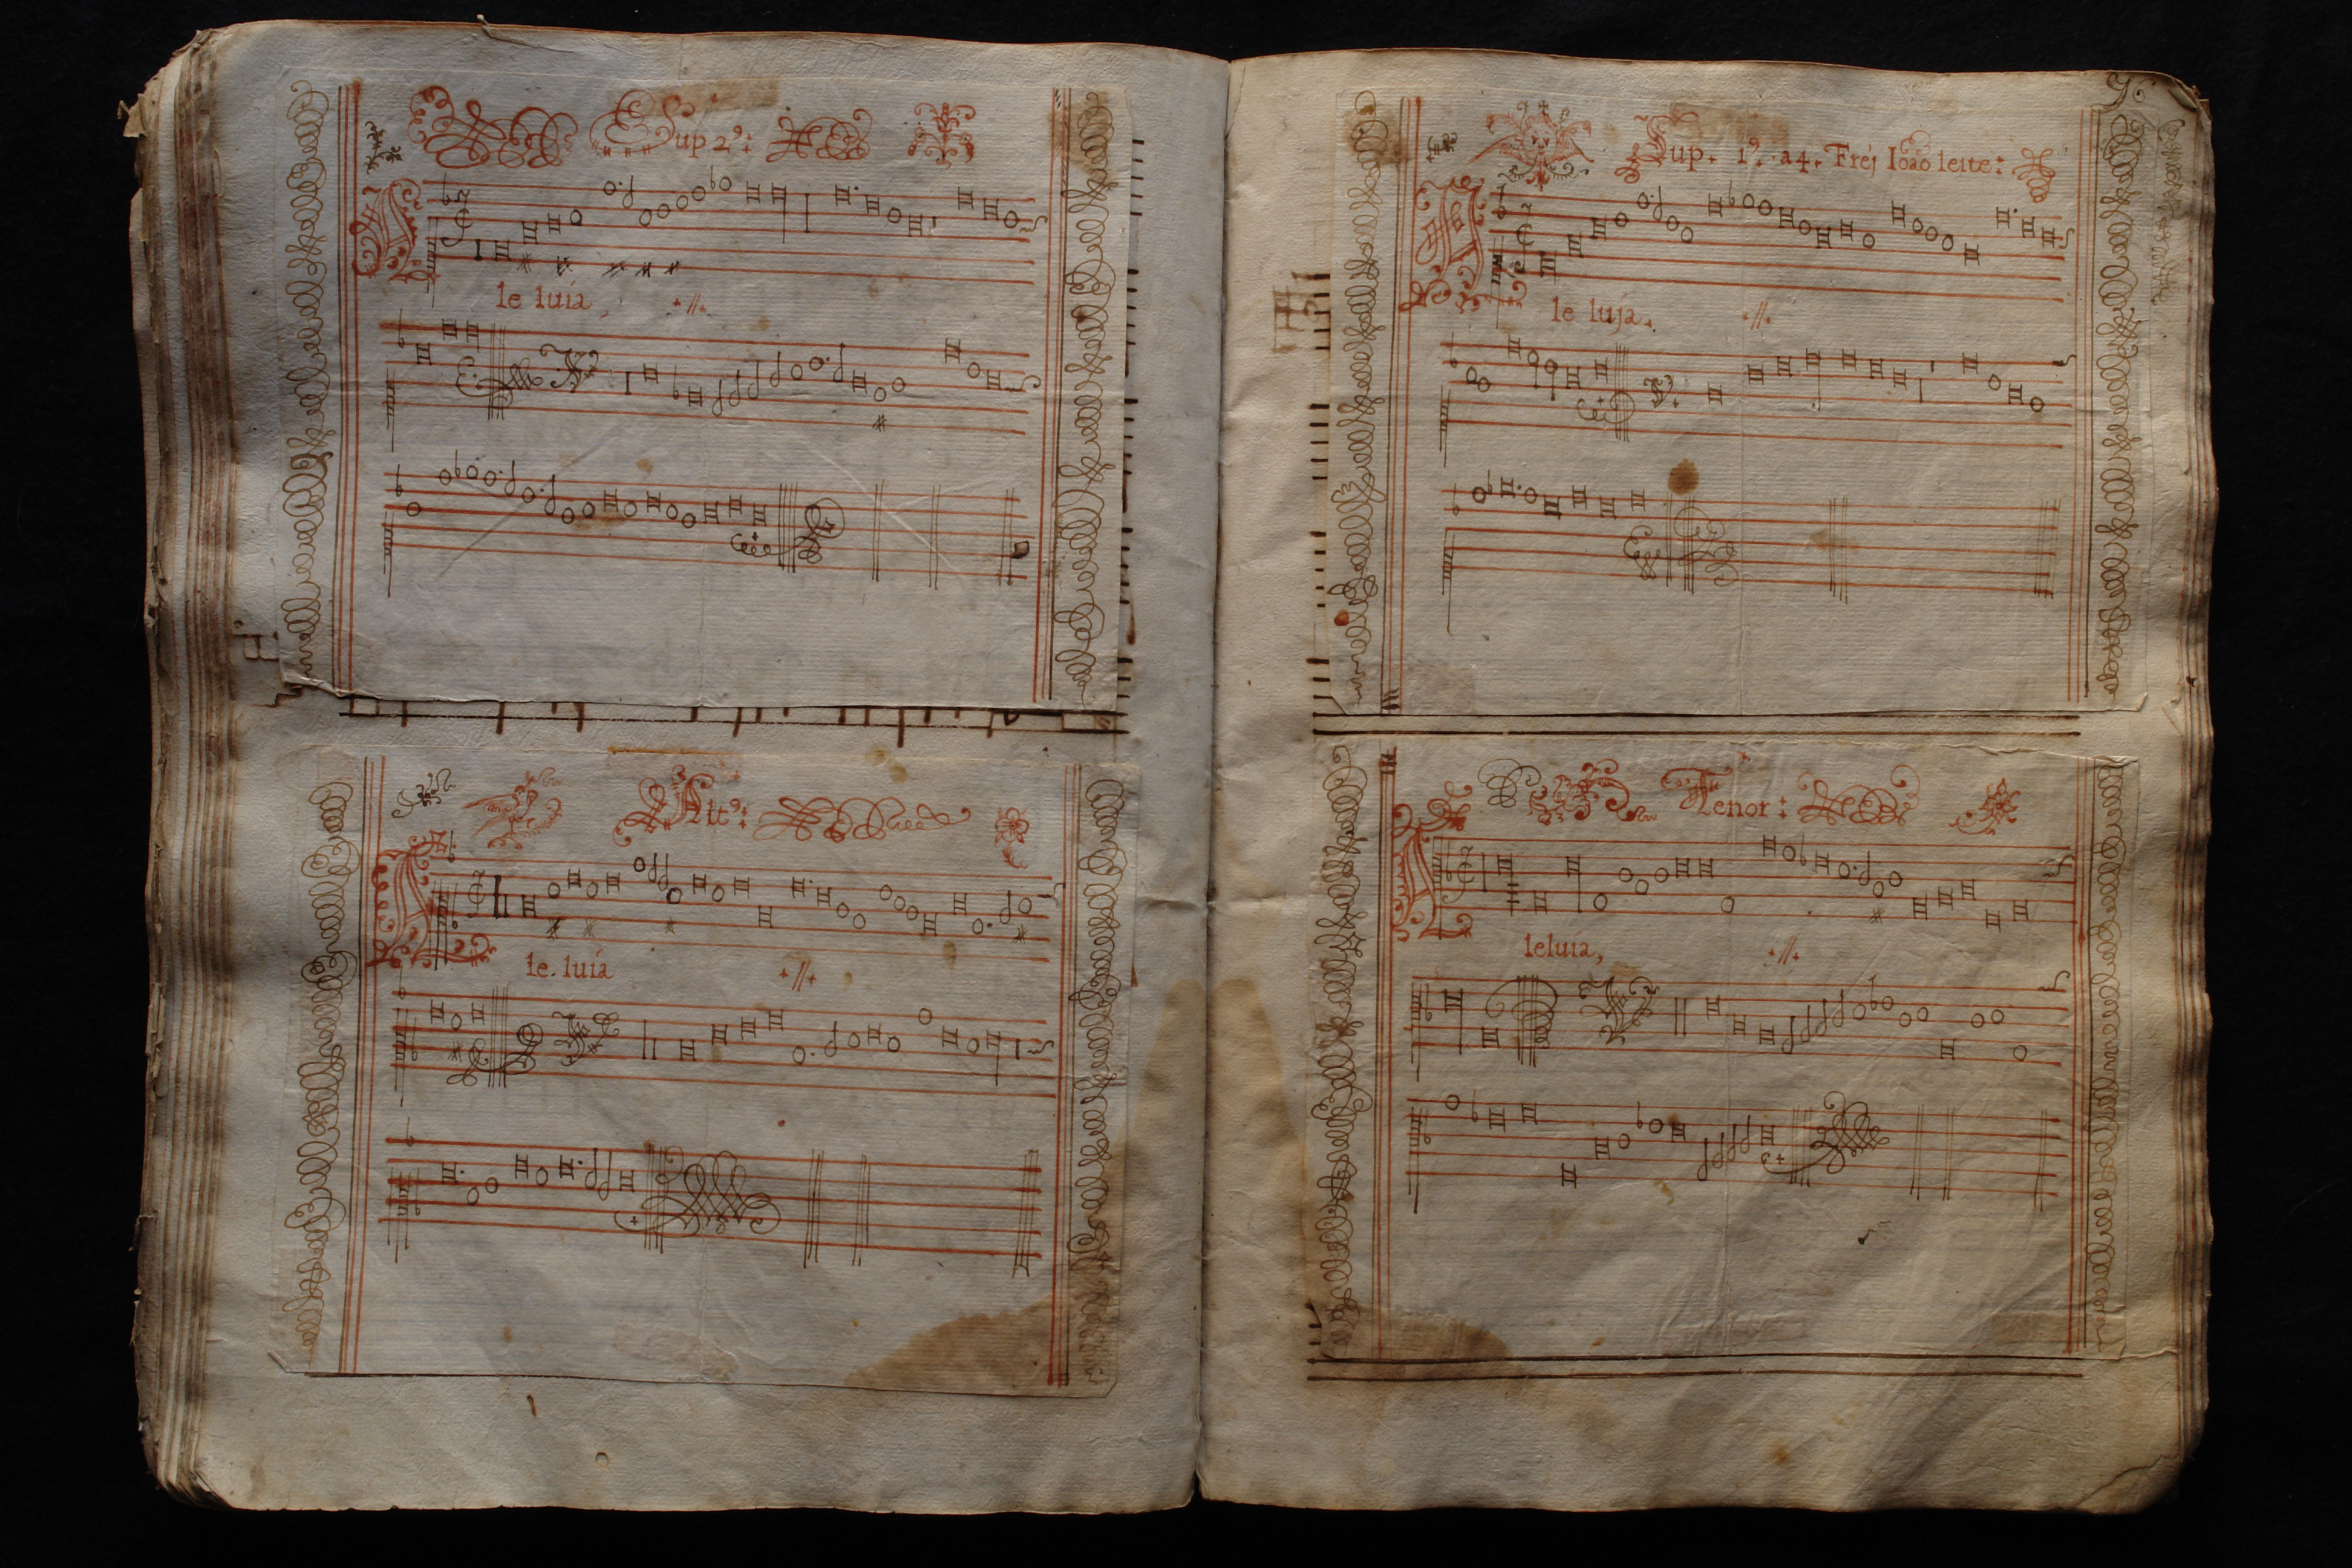 Sup 2º:
A
le luia, ·//·
Altº:
A
le. luia ·//·
Sup. 1º. a4. Frej Ioão leite:
A
le luja. ·//·
Tenor:
A
leluia, ·//·